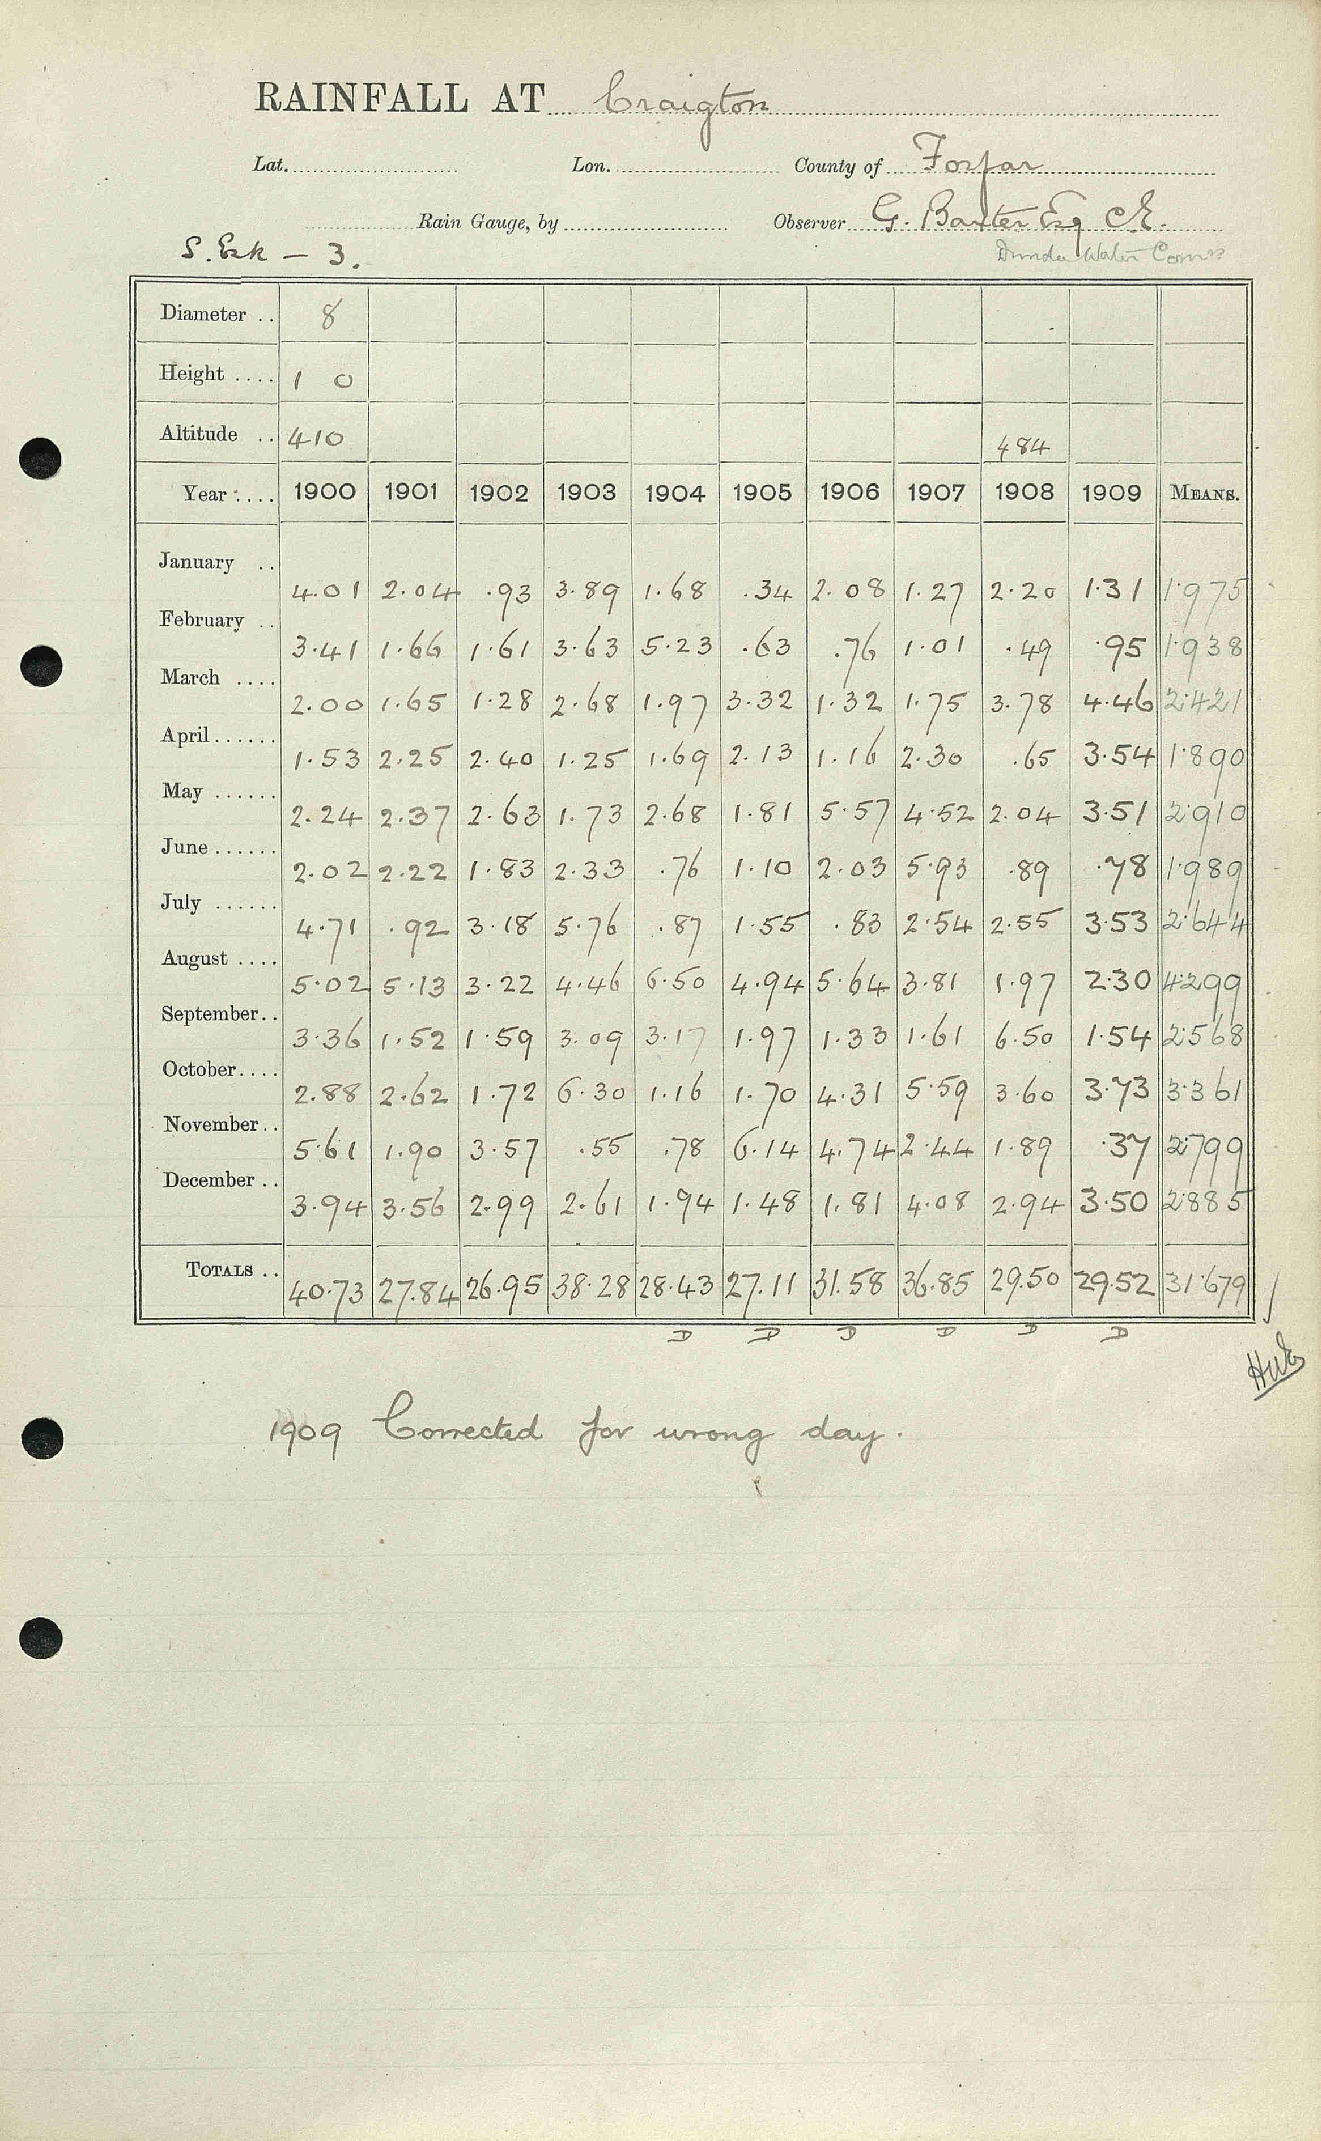 RAINFALL AT Craigton
Lat. Lon. County of Forfar
Rain Gauge, by Observer G. Baxter Esq C.E.
S. Esk — 3. Dundee Water Comrs
Diameter .. 8
Height .... 1 0
Altitude .. 410 484
Year .... 1900 1901 1902 1903 1904 1905 1906 1907 1908 1909 MEANS.
January .. 4.01 2.04 .93 3.89 1.68 .34 2.08 1.27 2.20 1.31 1.975
February .. 3.41 1.66 1.61 3.63 5.23 .63 .76 1.01 .49 .95 1.938
March .... 2.00 1.65 1.28 2.68 1.97 3.32 1.32 1.75 3.78 4.46 2.421
April...... 1.53 2.25 2.40 1.25 1.69 2.13 1.16 2.30 .65 3.54 1.890
May ...... 2.24 2.37 2.63 1.73 2.68 1.81 5.57 4.52 2.04 3.51 2.910
June ...... 2.02 2.22 1.83 2.33 .76 1.10 2.03 5.93 .89 .78 1.989
July ...... 4.71 .92 3.18 5.76 .87 1.55 .83 2.54 2.55 3.53 2.644
August .... 5.02 5.13 3.22 4.46 6.50 4.94 5.64 3.81 1.97 2.30 4.299
September.. 3.36 1.52 1.59 3.09 3.17 1.97 1.33 1.61 6.50 1.54 2.568
October.... 2.88 2.62 1.72 6.30 1.16 1.70 4.31 5.59 3.60 3.73 3.361
November.. 5.61 1.90 3.57 .55 .78 6.14 4.74 2.44 1.89 .37 2.799
December .. 3.94 3.56 2.99 2.61 1.94 1.48 1.81 4.08 2.94 3.50 2.885
TOTALS .. 40.73 27.84 26.95 38.28 28.43 27.11 31.58 36.85 29.50 29.52 31.679
D D D D D D
1909 Corrected for wrong day.